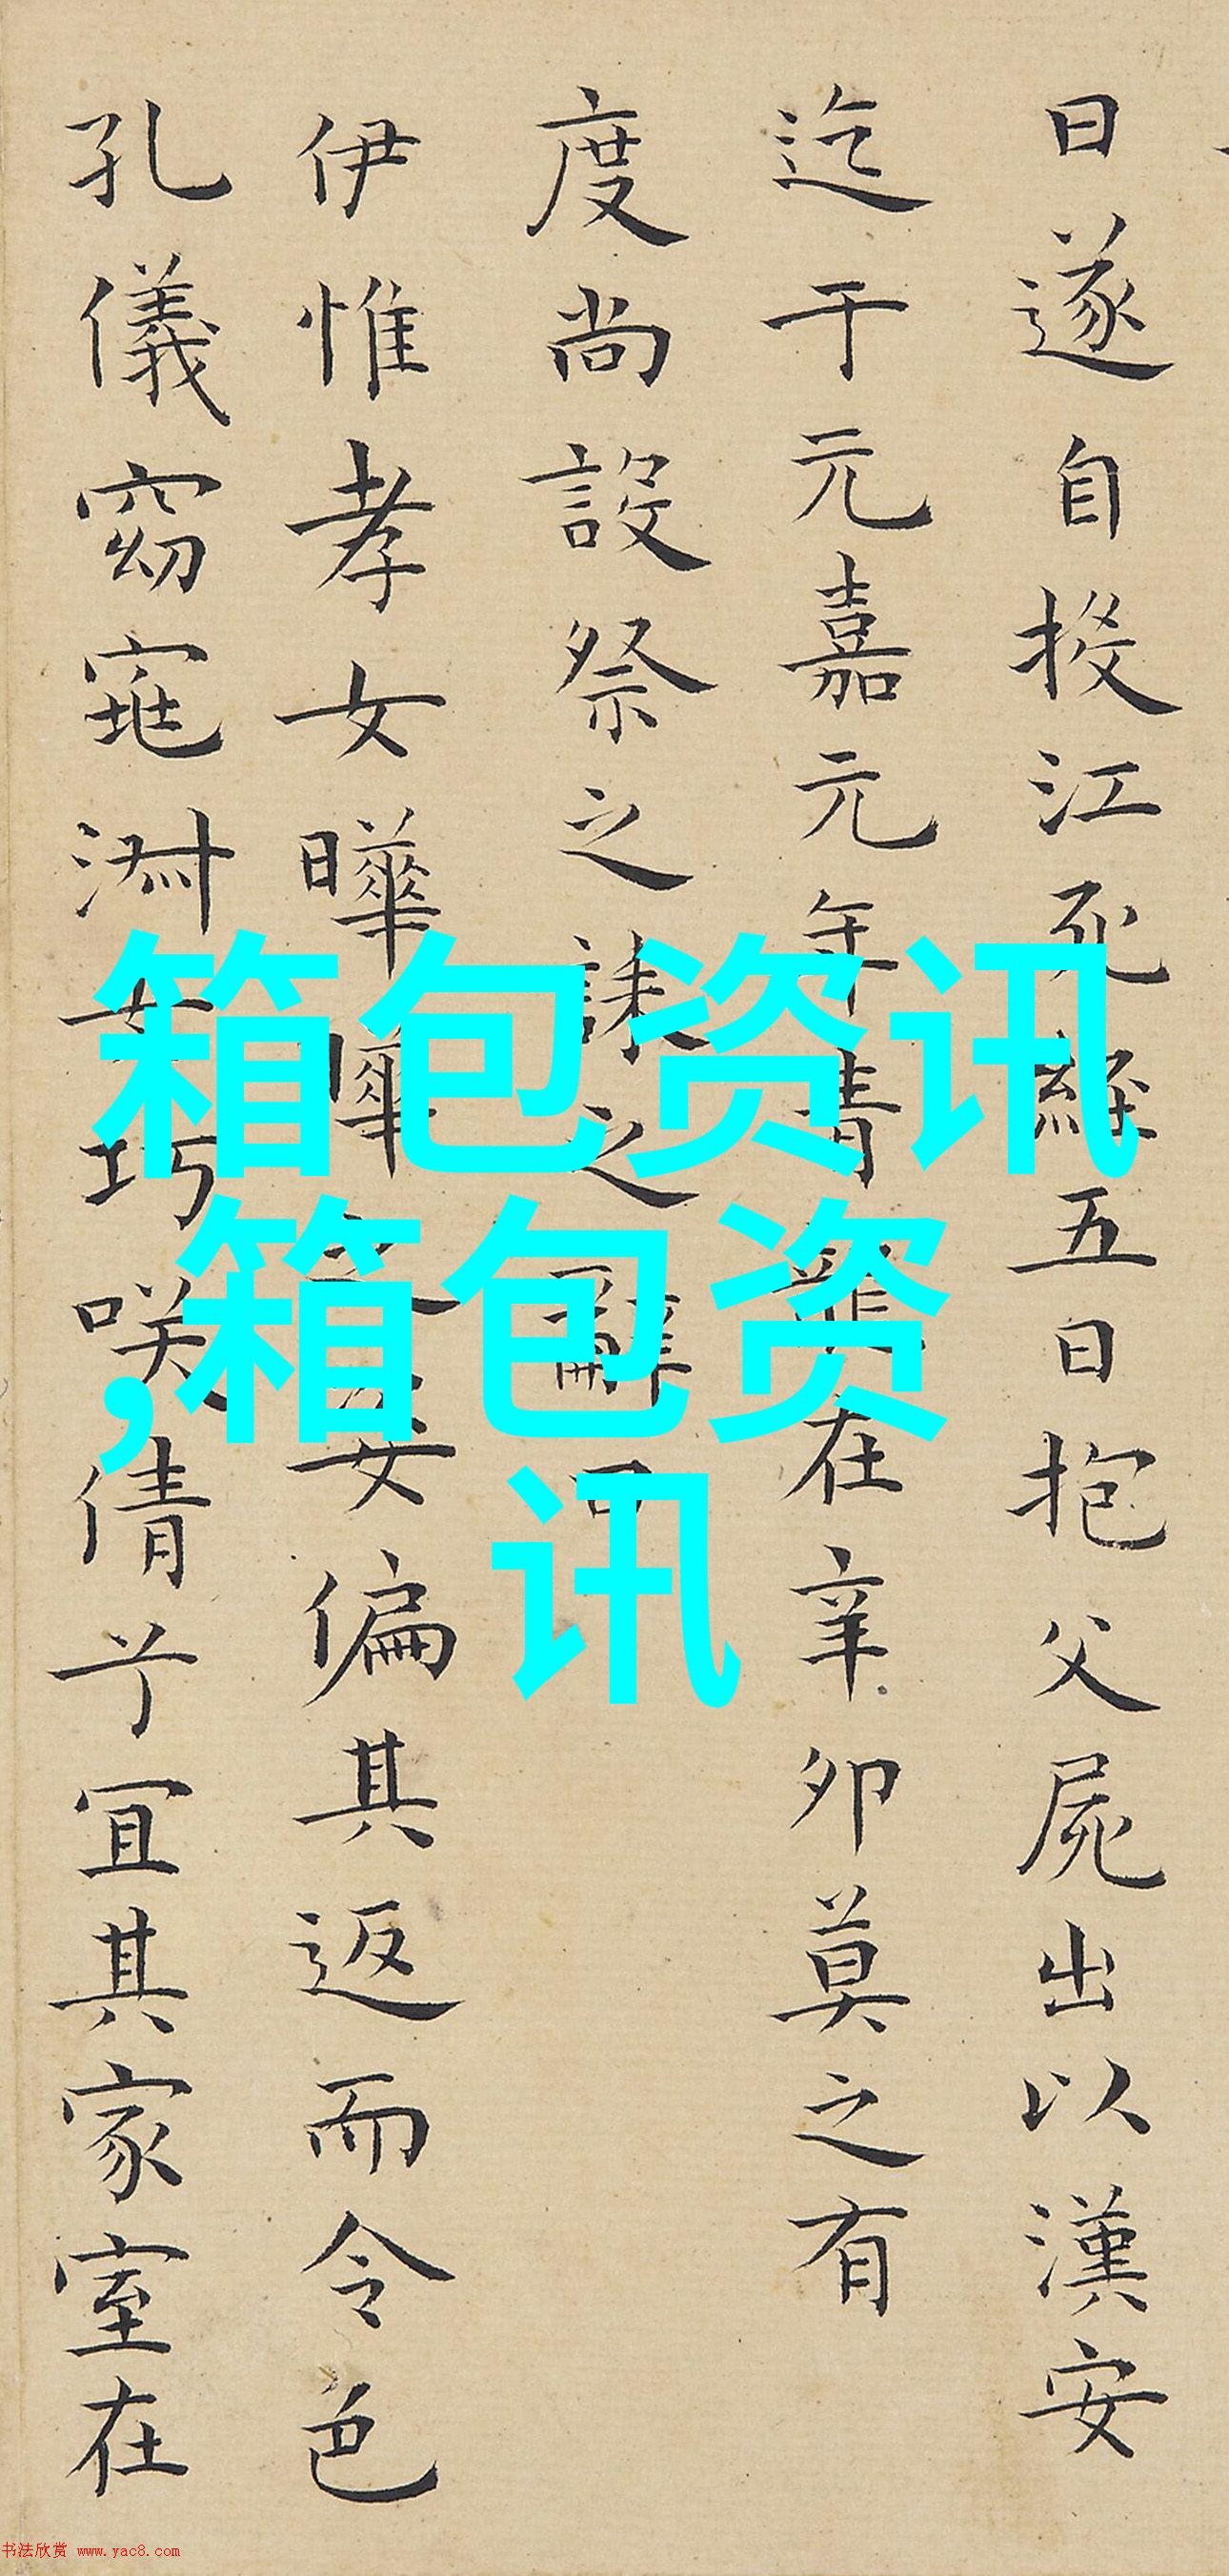 箱包资讯
,箱包资
讯
日遂自投江死經五日抱父屍出以漢安
迄于元嘉元年青龍在辛卯莫之有
度尚設祭之誄之辭曰
伊惟孝女曄曄之女偏其返而令色
孔儀窈窕淑女巧咲倩兮宜其家室在
书法欣赏 www.yac8.com